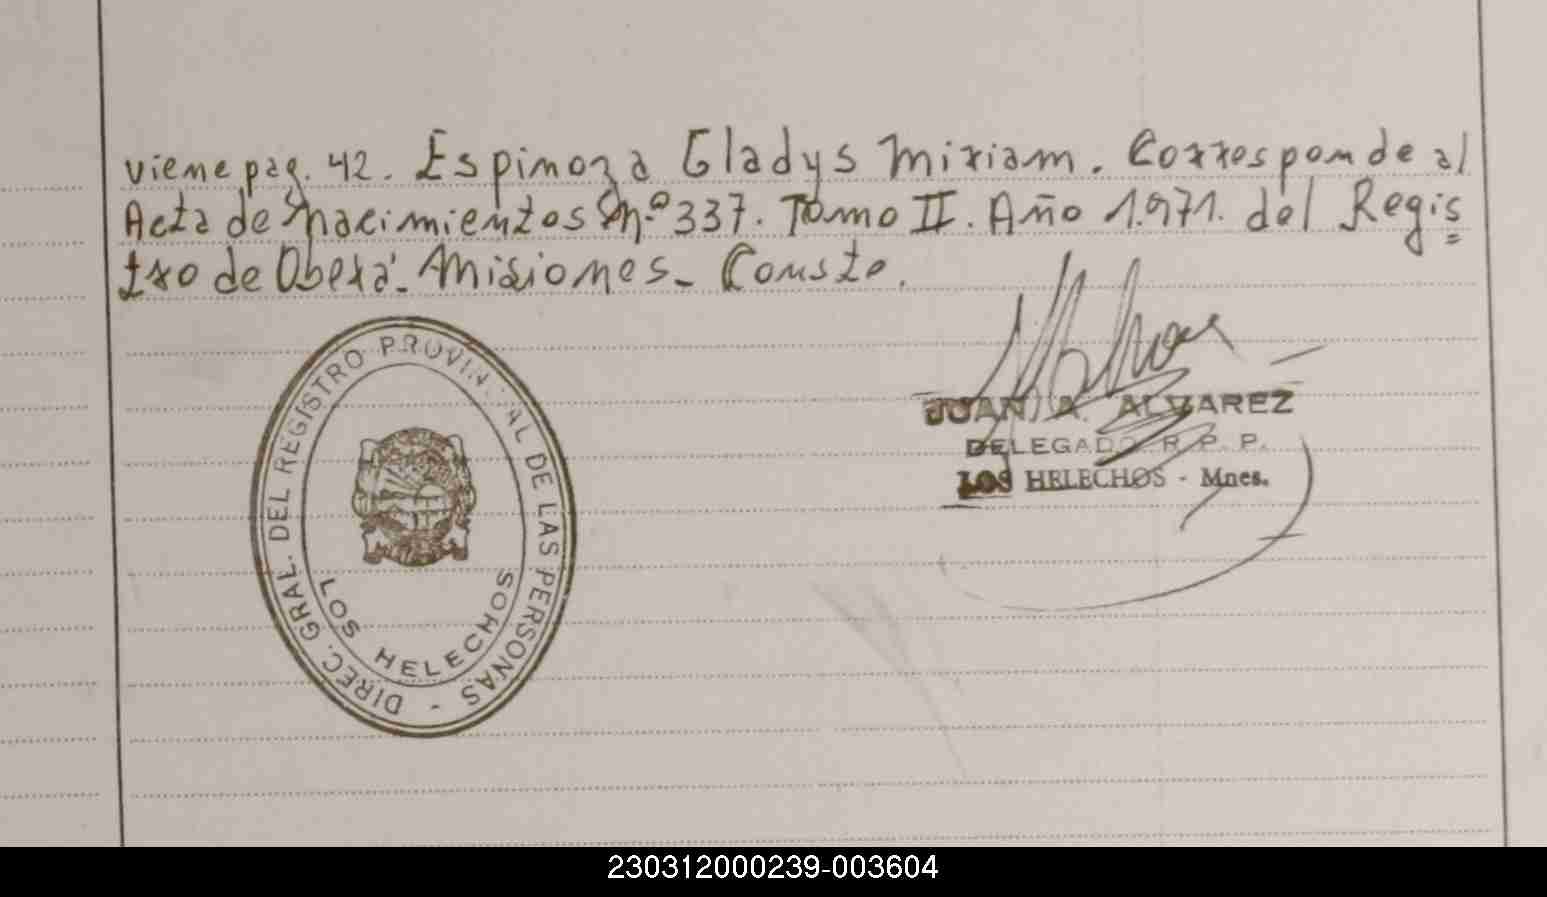 viene pag. 42. Espinoza Gladys Miriam. Corresponde al
Acta de nacimientos nº 337. Tomo II. Año 1.971. del Regis
tro de Oberá. Misiones. Conste.
DIREC. GRAL. DEL REGISTRO PROVINCIAL DE LAS PERSONAS -
LOS HELECHOS
JUAN A. ALVAREZ
DELEGADO R. P. P.
LOS HELECHOS - Mnes.
230312000239-003604